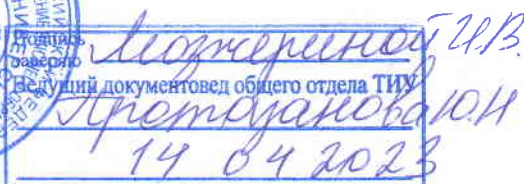 Подпись
заверяю Мозжериной И.В.
Ведущий документовед общего отдела ТИУ
Протозанова Ю.Н
14 04 2023